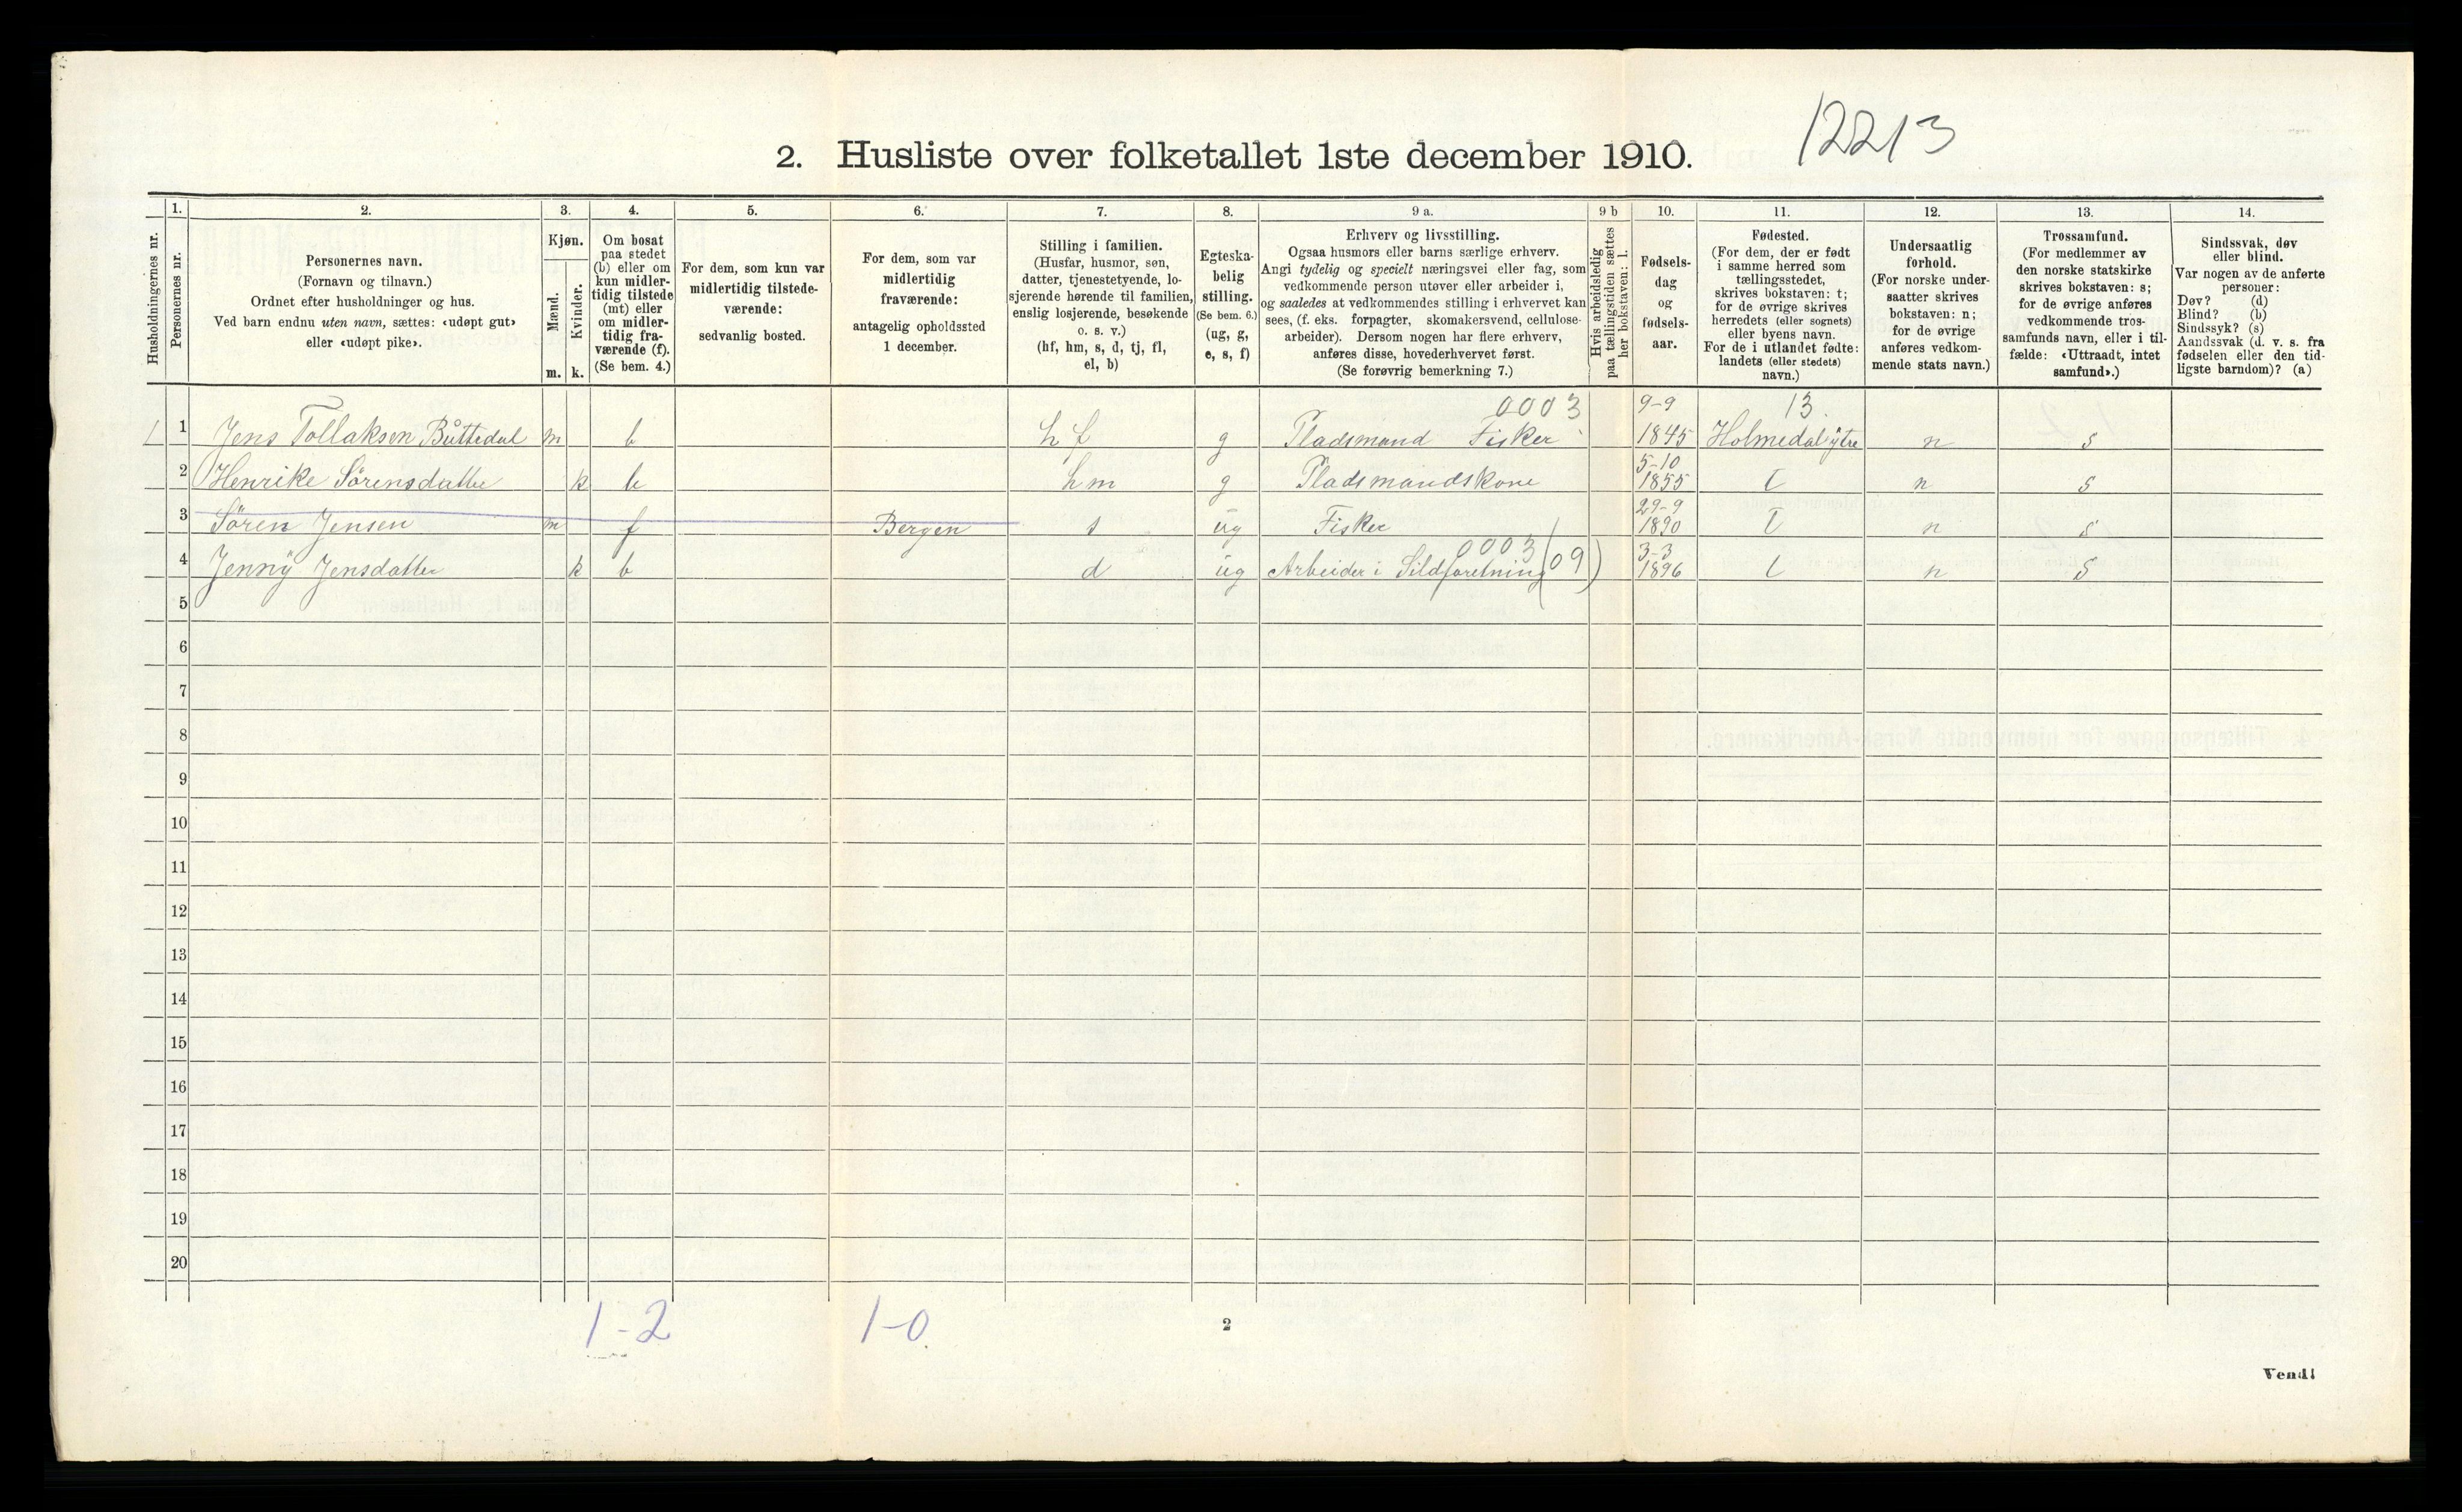 12213
2. Husliste over folketallet 1ste december 1910.
Husholdningernes nr.
1.
Personernes nr.
2.
Personernes navn.
(Fornavn og tilnavn.)
Ordnet efter husholdninger og hus.
Ved barn endnu uten navn, sættes: «udøpt gut»
eller «udøpt pike».
3.
Kjøn.
Mænd.
Kvinder.
m. k.
4.
Om bosat
paa stedet
(b) eller om
kun midler-
tidig tilstede
(mt) eller
om midler-
tidig fra-
værende (f).
(Se bem. 4.)
5.
For dem, som kun var
midlertidig tilstede-
værende:
sedvanlig bosted.
6.
For dem, som var
midlertidig
fraværende:
antagelig opholdssted
1 december.
7.
Stilling i familien.
(Husfar, husmor, søn,
datter, tjenestetyende, lo-
sjerende hørende til familien,
enslig losjerende, besøkende
o. s. v.)
(hf, hm, s, d, tj, fl,
el, b)
8.
Egteska-
belig
stilling.
(Se bem. 6.)
(ug, g,
e, s, f)
9 a.
Erhverv og livsstilling.
Ogsaa husmors eller barns særlige erhverv.
Angi tydelig og specielt næringsvei eller fag, som
vedkommende person utøver eller arbeider i,
og saaledes at vedkommendes stilling i erhvervet kan
sees, (f. eks. forpagter, skomakersvend, cellulose-
arbeider). Dersom nogen har flere erhverv,
anføres disse, hovederhvervet først.
(Se forøvrig bemerkning 7.)
9 b
Hvis arbeidsledig
paa tællingstiden sættes
her bokstaven: l.
10.
Fødsels-
dag
og
fødsels-
aar.
11.
Fødested.
(For dem, der er født
i samme herred som
tællingsstedet,
skrives bokstaven: t;
for de øvrige skrives
herredets (eller sognets)
eller byens navn.
For de i utlandet fødte:
landets (eller stedets)
navn.)
12.
Undersaatlig
forhold.
(For norske under-
saatter skrives
bokstaven: n;
for de øvrige
anføres vedkom-
mende stats navn.)
13.
Trossamfund.
(For medlemmer av
den norske statskirke
skrives bokstaven: s;
for de øvrige anføres
vedkommende tros-
samfunds navn, eller i til-
fælde: «Uttraadt, intet
samfund».)
14.
Sindssvak, døv
eller blind.
Var nogen av de anførte
personer:
Døv? (d)
Blind? (b)
Sindssyk? (s)
Aandssvak (d. v. s. fra
fødselen eller den tid-
ligste barndom)? (a)
0003 9-9 13.
1 1 Jens Tollaksen Büttedal m b hf g Pladsmand Fisker 1845 Holmedal ytre n s
5-10
2 Henrike Sörensdatter k b hm g Pladsmandskone 1855 t n s
29-9
3 Sören Jensen m f Bergen s ug Fisker 1890 t n s
0003 3-3
4 Jenny Jensdatter k b d ug Arbeider i Sildforretning (09) 1896 t n s
5
6
7
8
9
10
11
12
13
14
15
16
17
18
19
20
1-2 1-0.
2
Vend!